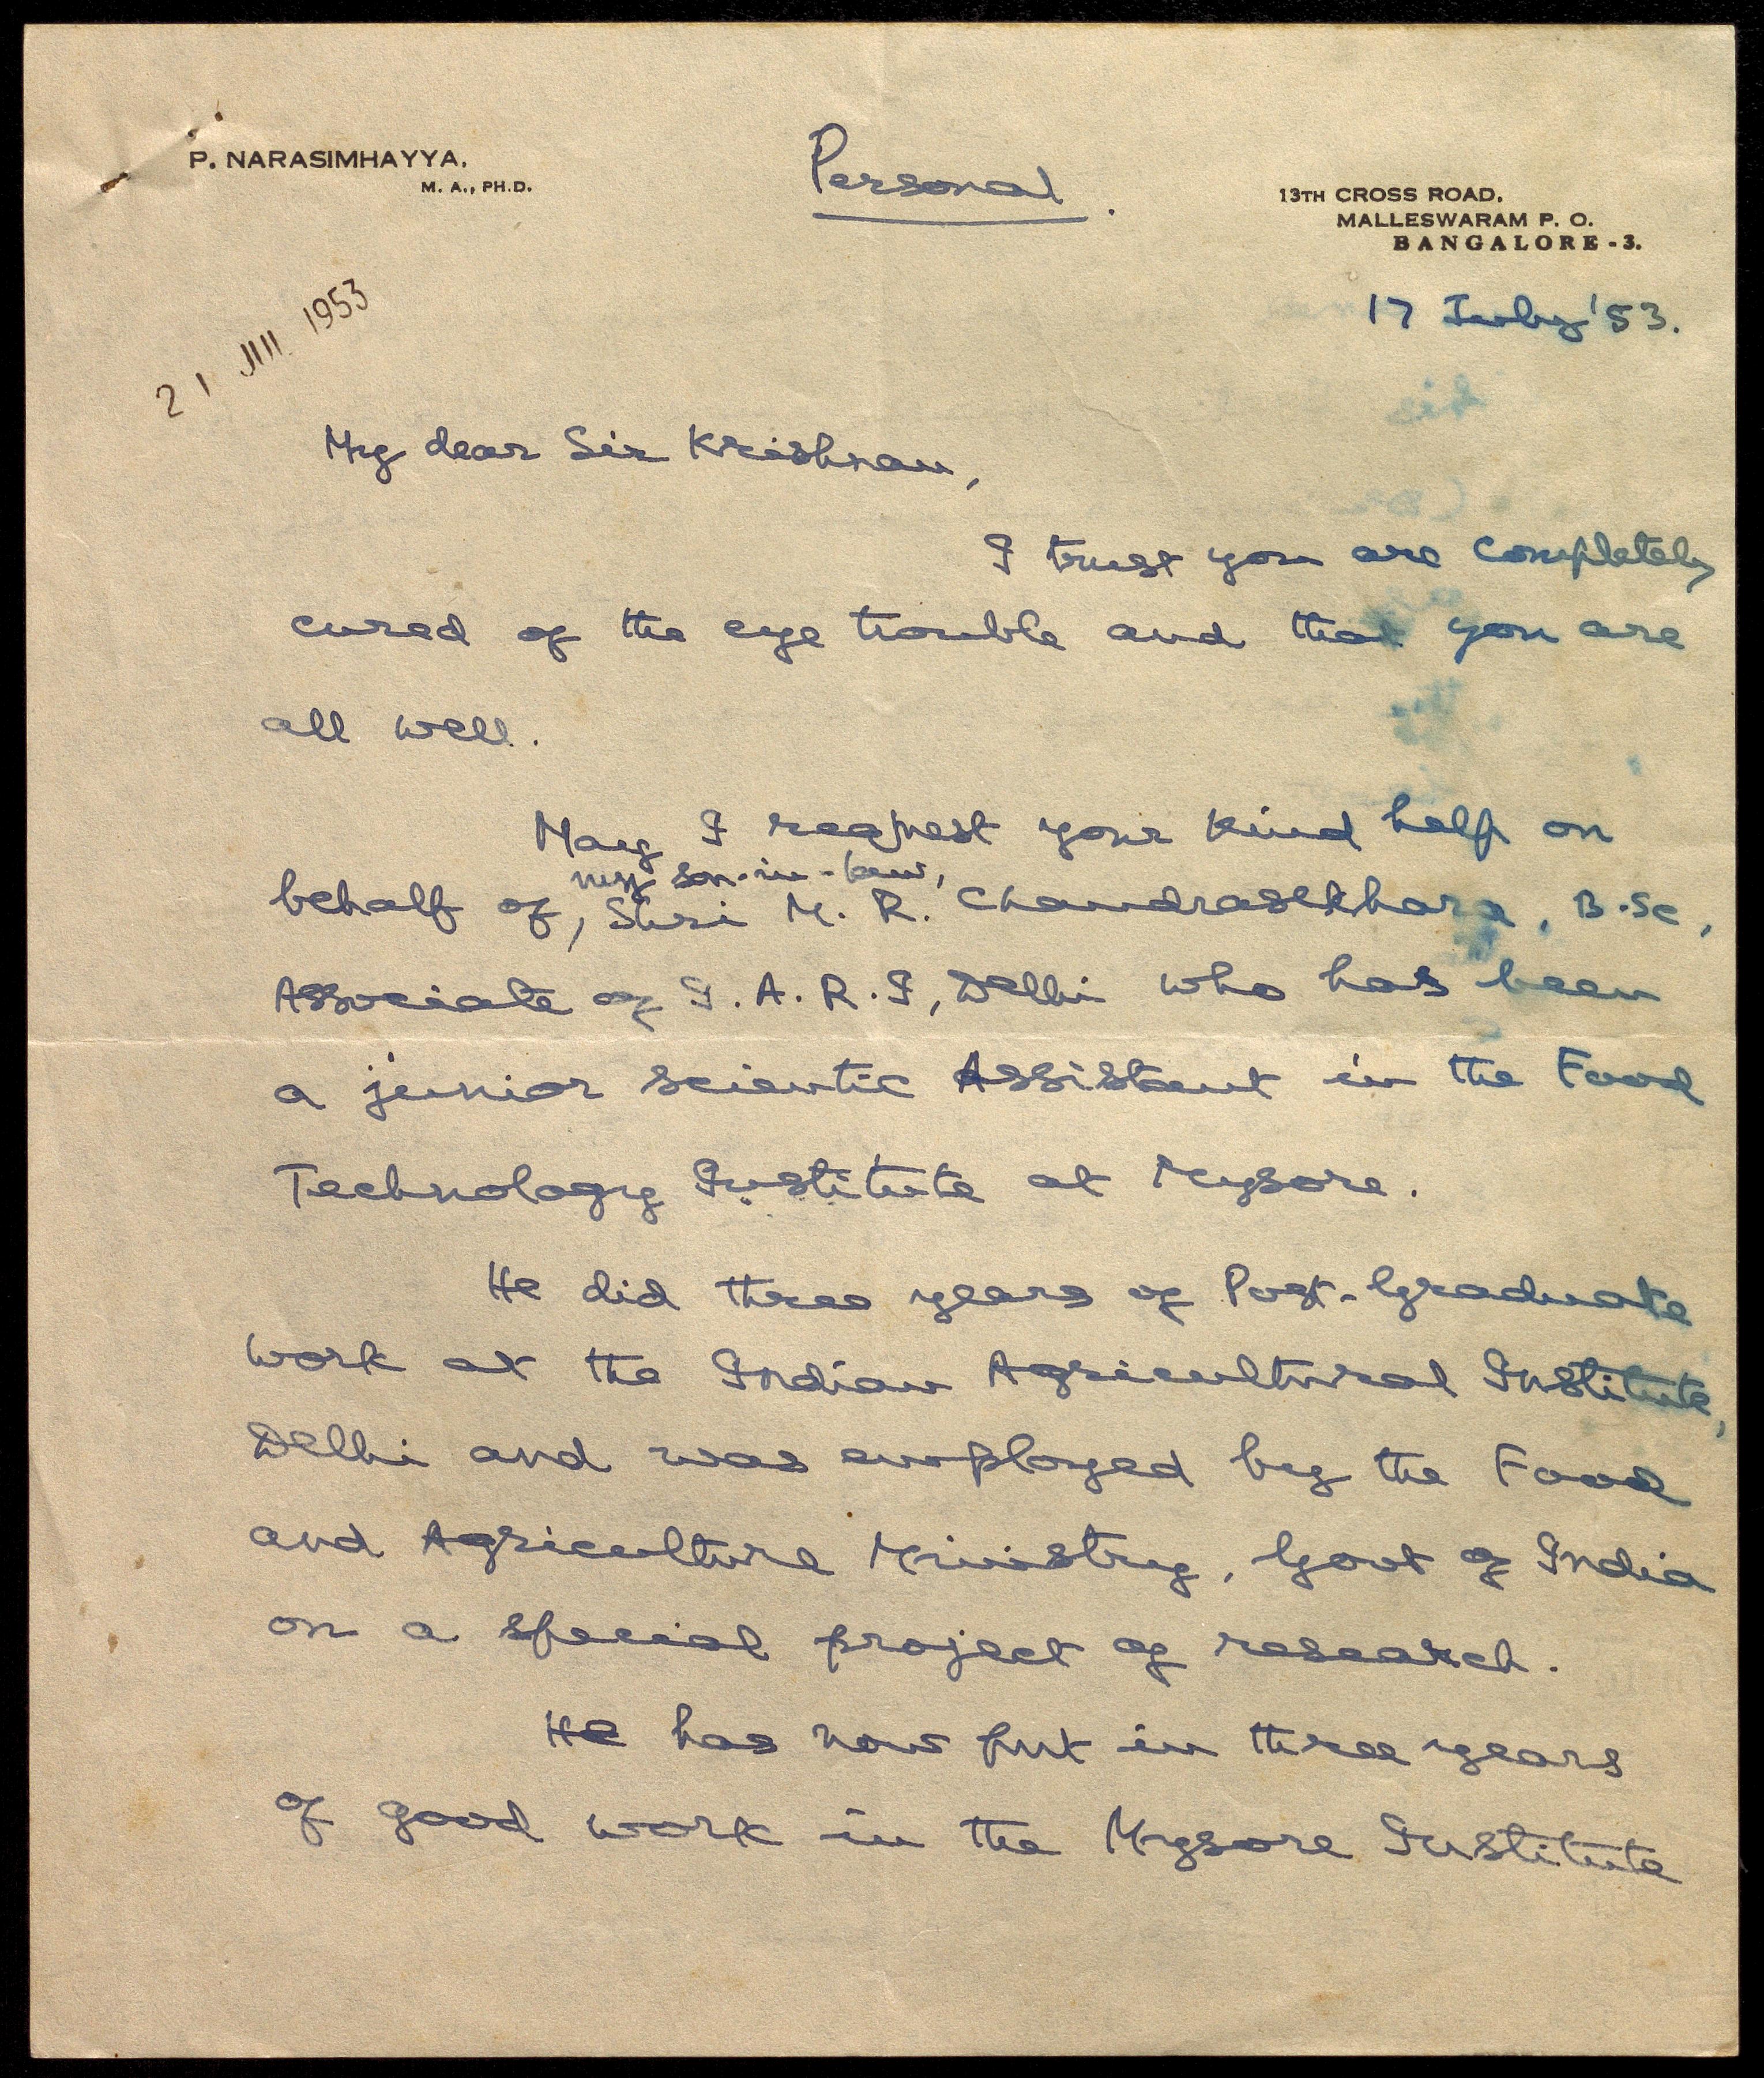 P. NARASIMHAYYA.
M. A., PH.D.
Personal.
13TH CROSS ROAD,
MALLESWARAM P. O.
BANGALORE-3.
17 July '53.
21 JUL 1953
My dear Sir Krishnan,
I trust you are completely
cured of the eye trouble and that you are
all well.
May I request your kind help on
my son-in-law,
behalf of, Shri M. R. Chandrasekhara, B.Sc,
Associate of I.A.R.I, Delhi who has been
a junior scientic Assistant in the Food
Technology Institute at Mysore.
He did three years of Post-Graduate
work at the Indian Agricultural Institute,
Delhi and was employed by the Food
and Agriculture Ministry, Govt of India
on a special project of research.
He has now put in three years
of good work in the Mysore Institute